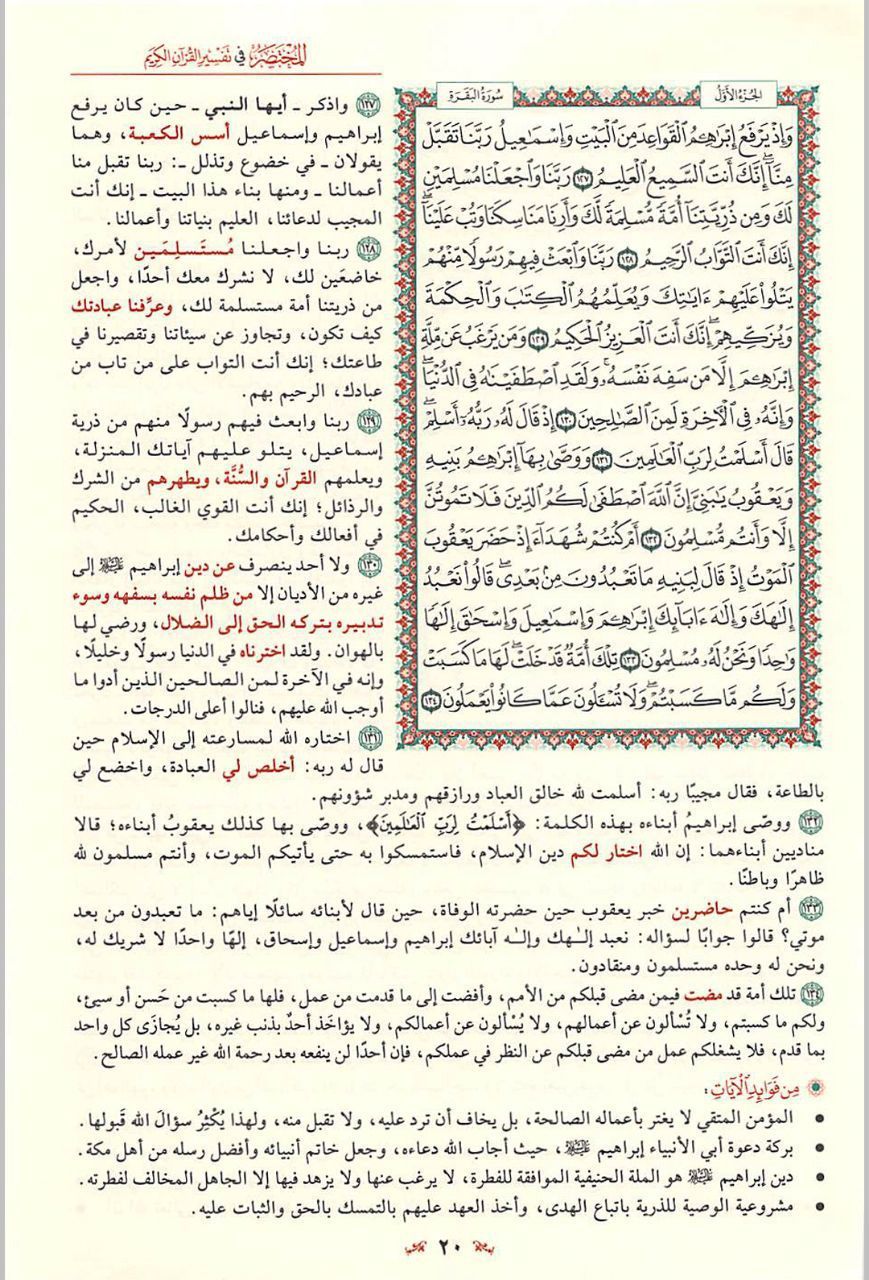 المختصر في تفسير القرآن الكريم
الجزء الأول
سورة البقرة
وَإِذْ يَرْفَعُ إِبْرَٰهِـۧمُ ٱلْقَوَاعِدَ مِنَ ٱلْبَيْتِ وَإِسْمَٰعِيلُ رَبَّنَا تَقَبَّلْ
مِنَّآ ۖ إِنَّكَ أَنتَ ٱلسَّمِيعُ ٱلْعَلِيمُ ١٢٧ رَبَّنَا وَٱجْعَلْنَا مُسْلِمَيْنِ
لَكَ وَمِن ذُرِّيَّتِنَآ أُمَّةً مُّسْلِمَةً لَّكَ وَأَرِنَا مَنَاسِكَنَا وَتُبْ عَلَيْنَآ ۖ
إِنَّكَ أَنتَ ٱلتَّوَّابُ ٱلرَّحِيمُ ١٢٨ رَبَّنَا وَٱبْعَثْ فِيهِمْ رَسُولًا مِّنْهُمْ
يَتْلُوا۟ عَلَيْهِمْ ءَايَٰتِكَ وَيُعَلِّمُهُمُ ٱلْكِتَٰبَ وَٱلْحِكْمَةَ
وَيُزَكِّيهِمْ ۚ إِنَّكَ أَنتَ ٱلْعَزِيزُ ٱلْحَكِيمُ ١٢٩ وَمَن يَرْغَبُ عَن مِّلَّةِ
إِبْرَٰهِـۧمَ إِلَّا مَن سَفِهَ نَفْسَهُۥ ۚ وَلَقَدِ ٱصْطَفَيْنَٰهُ فِى ٱلدُّنْيَا ۖ
وَإِنَّهُۥ فِى ٱلْءَاخِرَةِ لَمِنَ ٱلصَّٰلِحِينَ ١٣٠ إِذْ قَالَ لَهُۥ رَبُّهُۥٓ أَسْلِمْ ۖ
قَالَ أَسْلَمْتُ لِرَبِّ ٱلْعَٰلَمِينَ ١٣١ وَوَصَّىٰ بِهَآ إِبْرَٰهِـۧمُ بَنِيهِ
وَيَعْقُوبُ يَٰبَنِىَّ إِنَّ ٱللَّهَ ٱصْطَفَىٰ لَكُمُ ٱلدِّينَ فَلَا تَمُوتُنَّ
إِلَّا وَأَنتُم مُّسْلِمُونَ ١٣٢ أَمْ كُنتُمْ شُهَدَآءَ إِذْ حَضَرَ يَعْقُوبَ
ٱلْمَوْتُ إِذْ قَالَ لِبَنِيهِ مَا تَعْبُدُونَ مِنۢ بَعْدِى ۖ قَالُوا۟ نَعْبُدُ
إِلَٰهَكَ وَإِلَٰهَ ءَابَآئِكَ إِبْرَٰهِـۧمَ وَإِسْمَٰعِيلَ وَإِسْحَٰقَ إِلَٰهًا
وَٰحِدًا وَنَحْنُ لَهُۥ مُسْلِمُونَ ١٣٣ تِلْكَ أُمَّةٌ قَدْ خَلَتْ ۖ لَهَا مَا كَسَبَتْ
وَلَكُم مَّا كَسَبْتُمْ ۖ وَلَا تُسْـَٔلُونَ عَمَّا كَانُوا۟ يَعْمَلُونَ ١٣٤
١٢٧ واذكر ـ أيها النبي ـ حين كان يرفع
إبراهيم وإسماعيل أسس الكعبة، وهما
يقولان ـ في خضوع وتذلل ـ: ربنا تقبل منا
أعمالنا ـ ومنها بناء هذا البيت ـ إنك أنت
المجيب لدعائنا، العليم بنياتنا وأعمالنا.
١٢٨ ربنا واجعلنا مُستَسلِمَين لأمرك،
خاضعَين لك، لا نشرك معك أحدًا، واجعل
من ذريتنا أمة مستسلمة لك، وعرِّفنا عبادتك
كيف تكون، وتجاوز عن سيئاتنا وتقصيرنا في
طاعتك؛ إنك أنت التواب على من تاب من
عبادك، الرحيم بهم.
١٢٩ ربنا وابعث فيهم رسولًا منهم من ذرية
إسماعيل، يتلو عليهم آياتك المنزلة،
ويعلمهم القرآن والسُّنَّة، ويطهرهم من الشرك
والرذائل؛ إنك أنت القوي الغالب، الحكيم
في أفعالك وأحكامك.
١٣٠ ولا أحد ينصرف عن دين إبراهيم ﷺ إلى
غيره من الأديان إلا من ظلم نفسه بسفهه وسوء
تدبيره بتركه الحق إلى الضلال، ورضي لها
بالهوان. ولقد اخترناه في الدنيا رسولًا وخليلًا،
وإنه في الآخرة لمن الصالحين الذين أدوا ما
أوجب الله عليهم، فنالوا أعلى الدرجات.
١٣١ اختاره الله لمسارعته إلى الإسلام حين
قال له ربه: أخلص لي العبادة، واخضع لي
بالطاعة، فقال مجيبًا ربه: أسلمت لله خالق العباد ورازقهم ومدبر شؤونهم.
١٣٢ ووصّى إبراهيمُ أبناءه بهذه الكلمة: ﴿أَسْلَمْتُ لِرَبِّ ٱلْعَٰلَمِينَ﴾، ووصّى بها كذلك يعقوبُ أبناءه؛ قالا
مناديين أبناءهما: إن الله اختار لكم دين الإسلام، فاستمسكوا به حتى يأتيكم الموت، وأنتم مسلمون لله
ظاهرًا وباطنًا.
١٣٣ أم كنتم حاضرين خبر يعقوب حين حضرته الوفاة، حين قال لأبنائه سائلًا إياهم: ما تعبدون من بعد
موتي؟ قالوا جوابًا لسؤاله: نعبد إلٰهك وإلٰه آبائك إبراهيم وإسماعيل وإسحاق، إلهًا واحدًا لا شريك له،
ونحن له وحده مستسلمون ومنقادون.
١٣٤ تلك أمة قد مضت فيمن مضى قبلكم من الأمم، وأفضت إلى ما قدمت من عمل، فلها ما كسبت من حَسن أو سيئ،
ولكم ما كسبتم، ولا تُسْألون عن أعمالهم، ولا يُسْألون عن أعمالكم، ولا يؤاخَذ أحدٌ بذنب غيره، بل يُجازَى كل واحد
بما قدم، فلا يشغلكم عمل من مضى قبلكم عن النظر في عملكم، فإن أحدًا لن ينفعه بعد رحمة الله غير عمله الصالح.
من فوائد الآيات:
• المؤمن المتقي لا يغتر بأعماله الصالحة، بل يخاف أن ترد عليه، ولا تقبل منه، ولهذا يُكْثِرُ سؤالَ الله قَبولها.
• بركة دعوة أبي الأنبياء إبراهيم ﷺ، حيث أجاب الله دعاءه، وجعل خاتم أنبيائه وأفضل رسله من أهل مكة.
• دين إبراهيم ﷺ هو الملة الحنيفية الموافقة للفطرة، لا يرغب عنها ولا يزهد فيها إلا الجاهل المخالف لفطرته.
• مشروعية الوصية للذرية باتباع الهدى، وأخذ العهد عليهم بالتمسك بالحق والثبات عليه.
٢٠